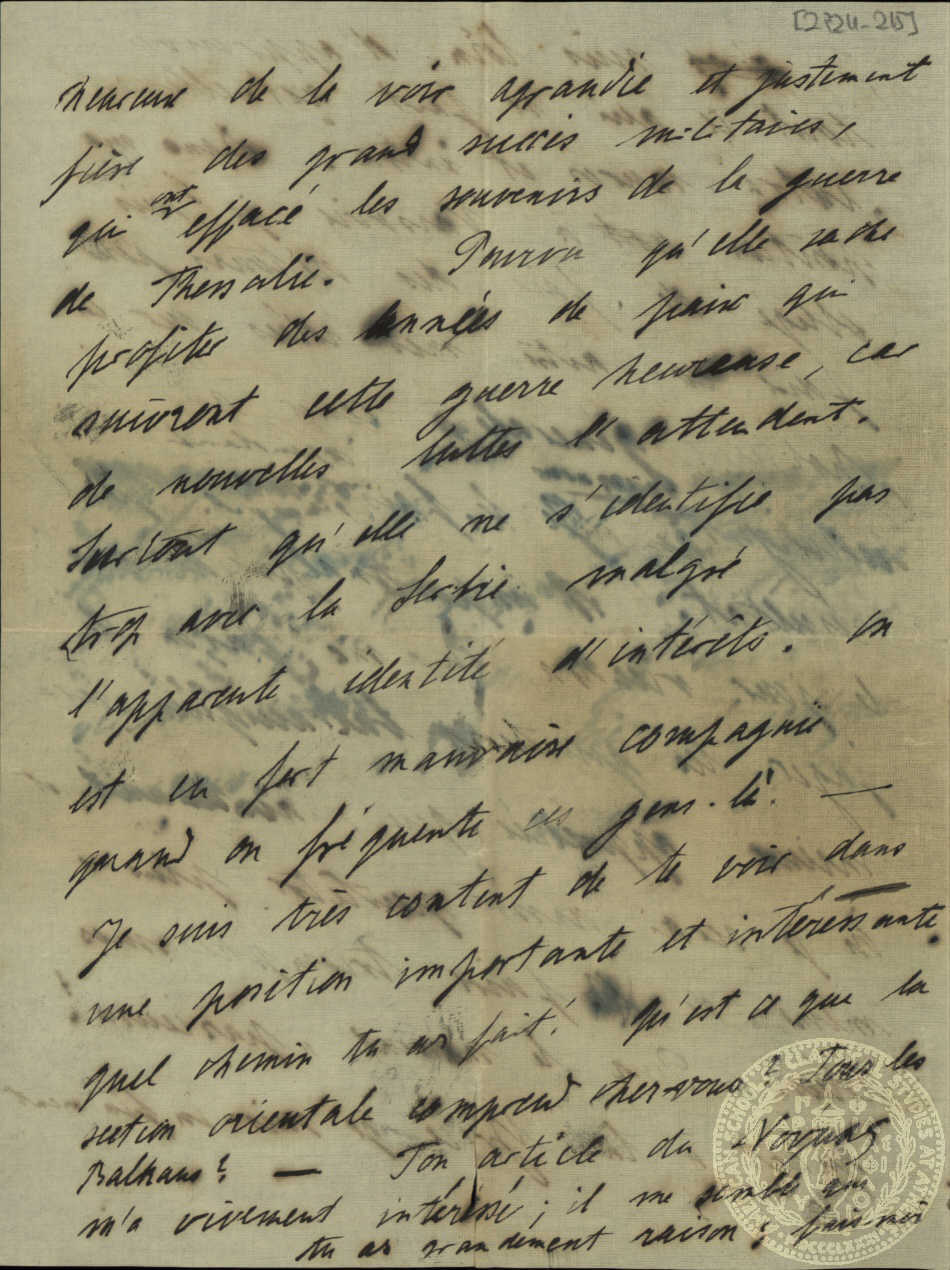 [2324-215]
heureux de la voir agrandie et justement
fière des grands succès militaires,
qui ont effacé les souvenirs de la guerre
de Thessalie. Pourvu qu'elle sache
profiter des années de paix qui
suivront cette guerre heureuse, car
de nouvelles luttes l'attendent.
Surtout qu'elle ne s'identifie pas
trop avec la Serbie malgré
l'apparente identité d'intérêts. On
est en fort mauvaise compagnie
quand on fréquente ces gens-là. —
Je suis très content de te voir dans
une position importante et intéressante.
quel chemin tu as fait! Qu'est ce que la
section orientale comprend chez-vous? Tous les
Balkans? — Ton article du
m'a vivement intéressé; il me semble que
tu as grandement raison; fais-moi